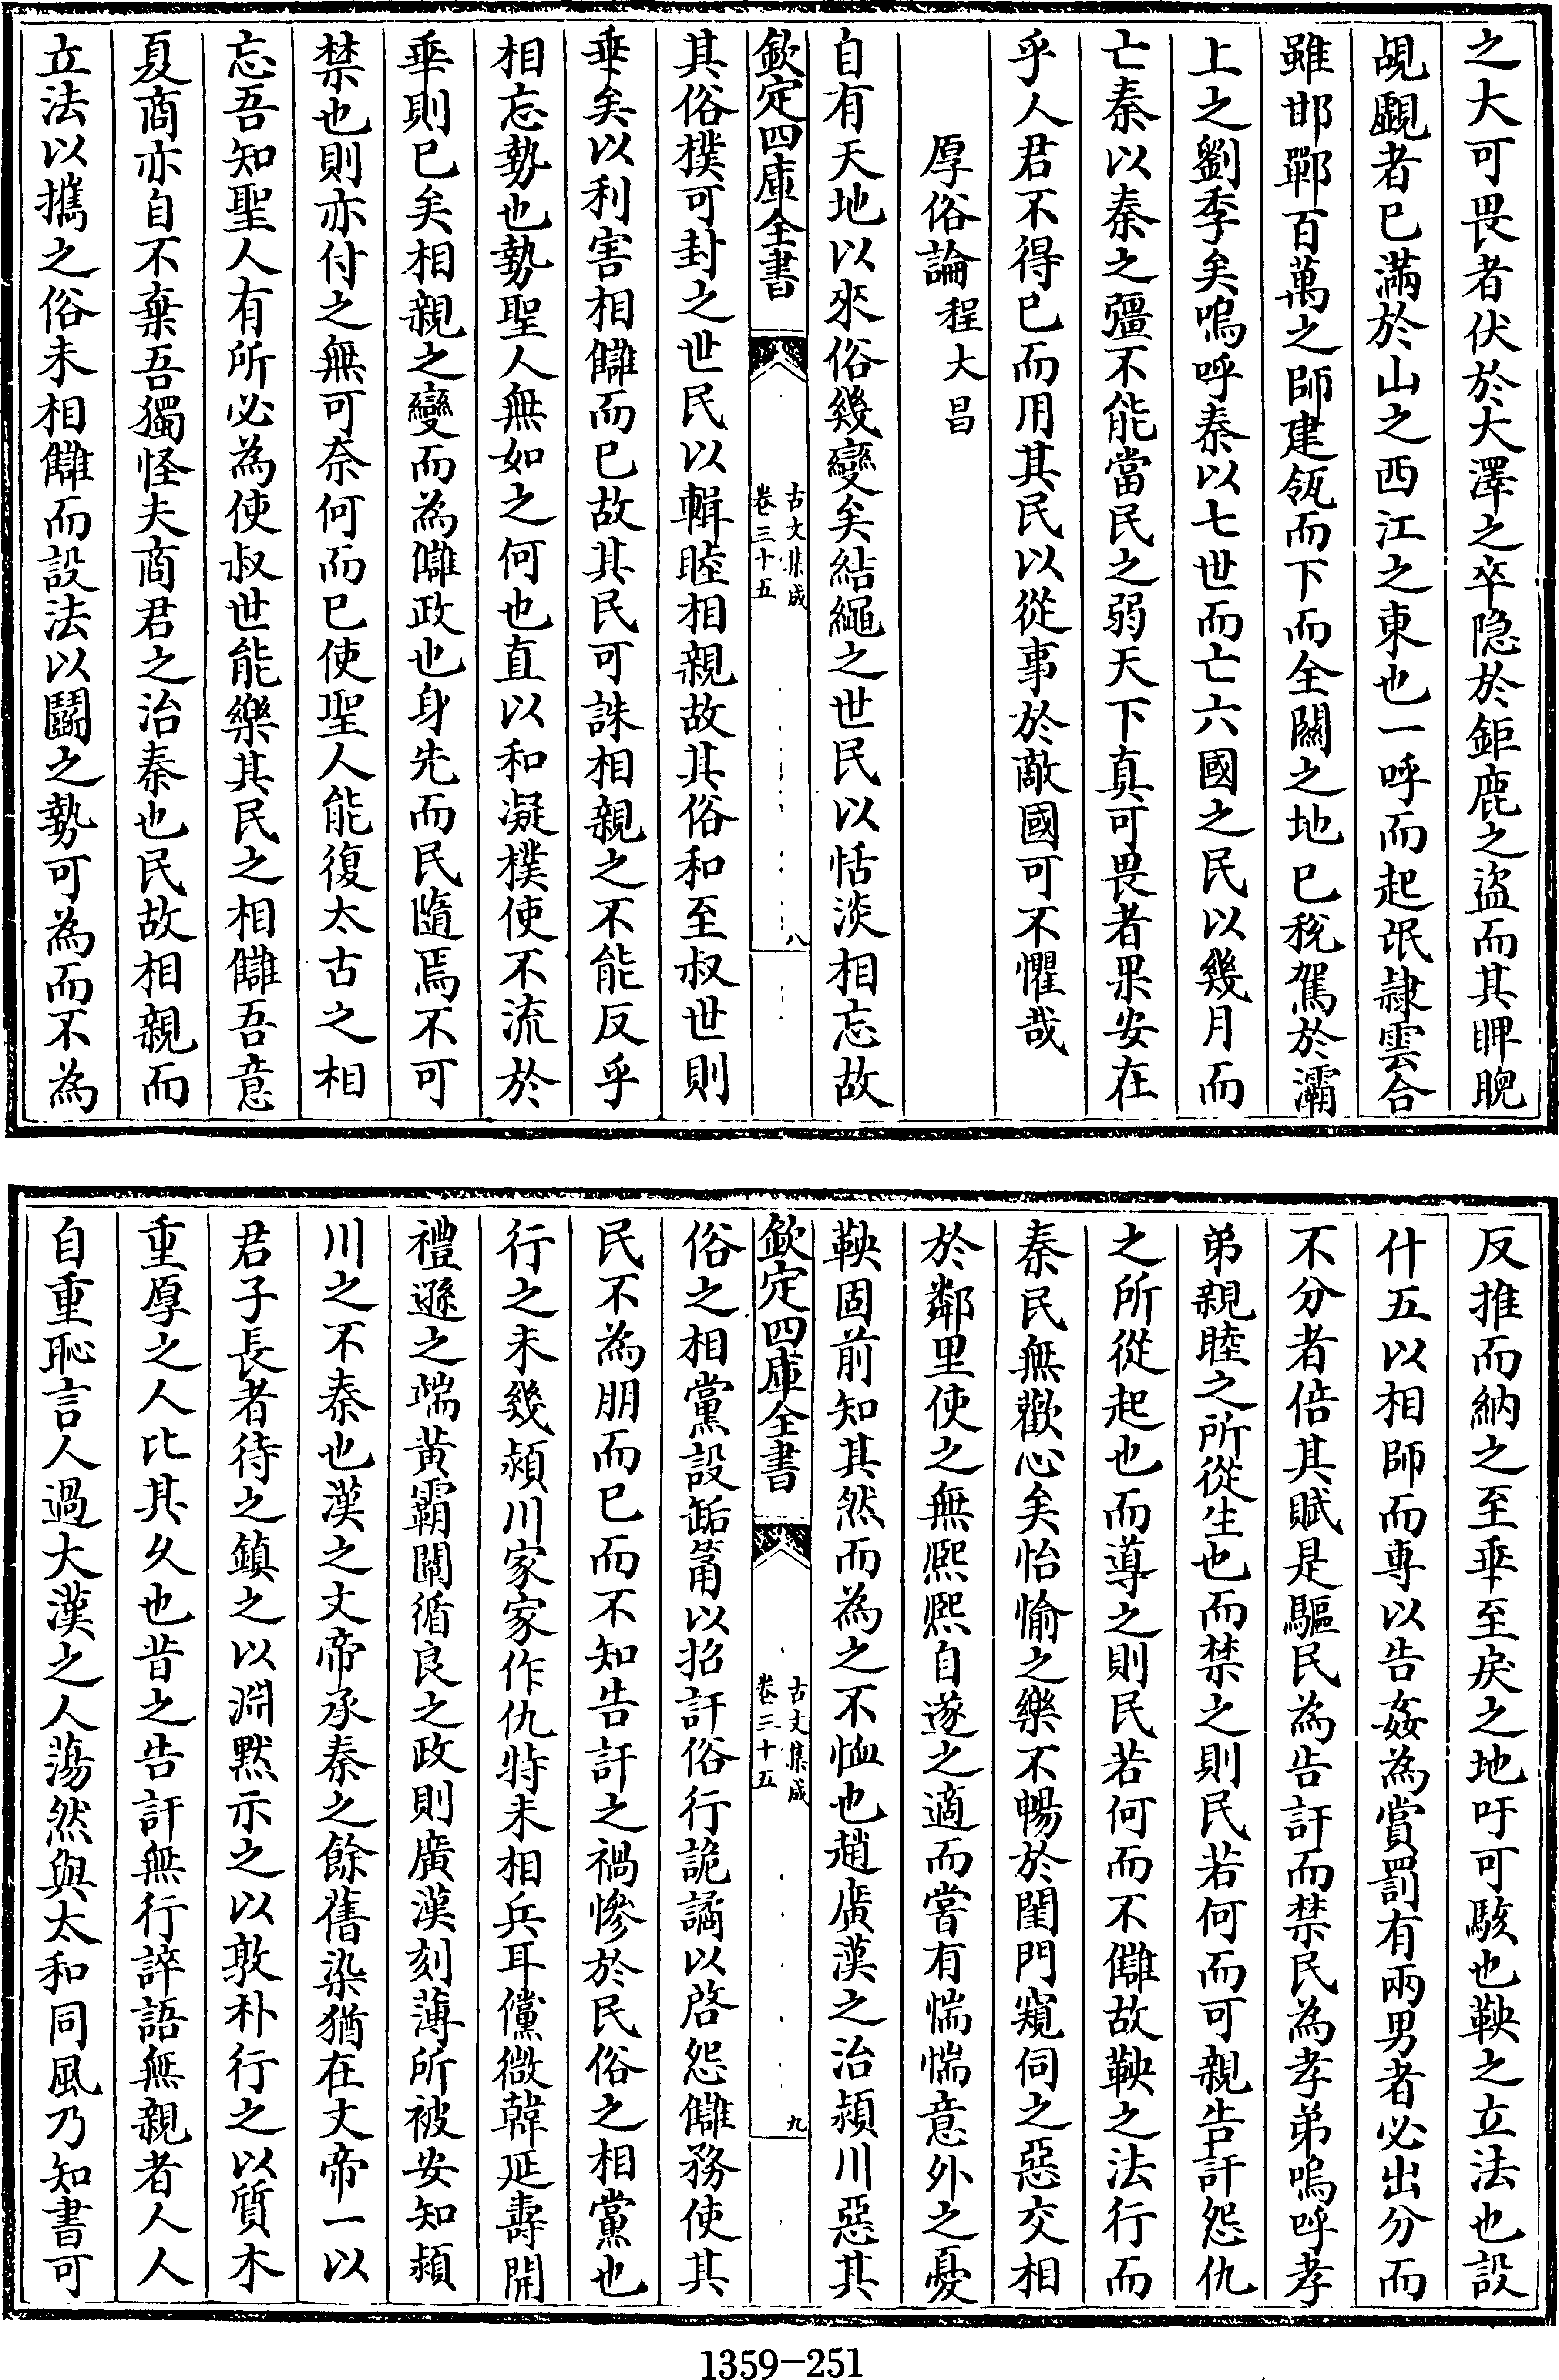 之大可畏者伏於大澤之卒隐於鉅鹿之盜而其睥睨
覘覰者已滿於山之西江之東也一呼而起氓隷雲合
雖邯鄲百萬之師建瓴而下而全關之地已稅駕於灞
上之劉季矣嗚呼秦以七世而亡六國之民以幾月而
亡秦以秦之彊不能當民之弱天下真可畏者果安在
乎人君不得已而用其民以從事於敵國可不懼哉
厚俗論 程大昌
自有天地以來俗幾變矣結繩之世民以恬淡相忘故
欽定四庫全書 古文集成 卷三十五 八
其俗樸可封之世民以輯睦相親故其俗和至叔世則
乖矣以利害相讎而已故其民可誅相親之不能反乎
相忘勢也勢聖人無如之何也直以和凝樸使不流於
乖則已矣相親之變而為讎政也身先而民隨焉不可
禁也則亦付之無可奈何而已使聖人能復太古之相
忘吾知聖人有所必為使叔世能樂其民之相讎吾意
夏商亦自不棄吾獨怪夫商君之治秦也民故相親而
立法以攜之俗未相讎而設法以鬭之勢可為而不為
反推而納之至乖至戾之地吁可駭也鞅之立法也設
什五以相師而専以告姦為賞罰有兩男者必出分而
不分者倍其賦是驅民為告訐而禁民為孝弟嗚呼孝
弟親睦之所從生也而禁之則民若何而可親告訐怨仇
之所從起也而導之則民若何而不讎故鞅之法行而
秦民無歡心矣怡愉之樂不暢於閨門窺伺之惡交相
於鄰里使之無熙熙自遂之適而嘗有惴惴意外之憂
鞅固前知其然而為之不恤也趙廣漢之治潁川惡其
欽定四庫全書 古文集成 卷三十五 九
俗之相黨設缿筩以招訐俗行詭譎以啓怨讎務使其
民不為朋而已而不知告訐之禍慘於民俗之相黨也
行之未幾潁川家家作仇特未相兵耳儻微韓延壽開
禮遜之端黄霸闡循良之政則廣漢刻薄所被安知潁
川之不秦也漢之文帝承秦之餘舊染猶在文帝一以
君子長者待之鎮之以淵黙示之以敦朴行之以質木
重厚之人比其久也昔之告訐無行誶語無親者人人
自重恥言人過大漢之人蕩然與太和同風乃知書可
1359-251